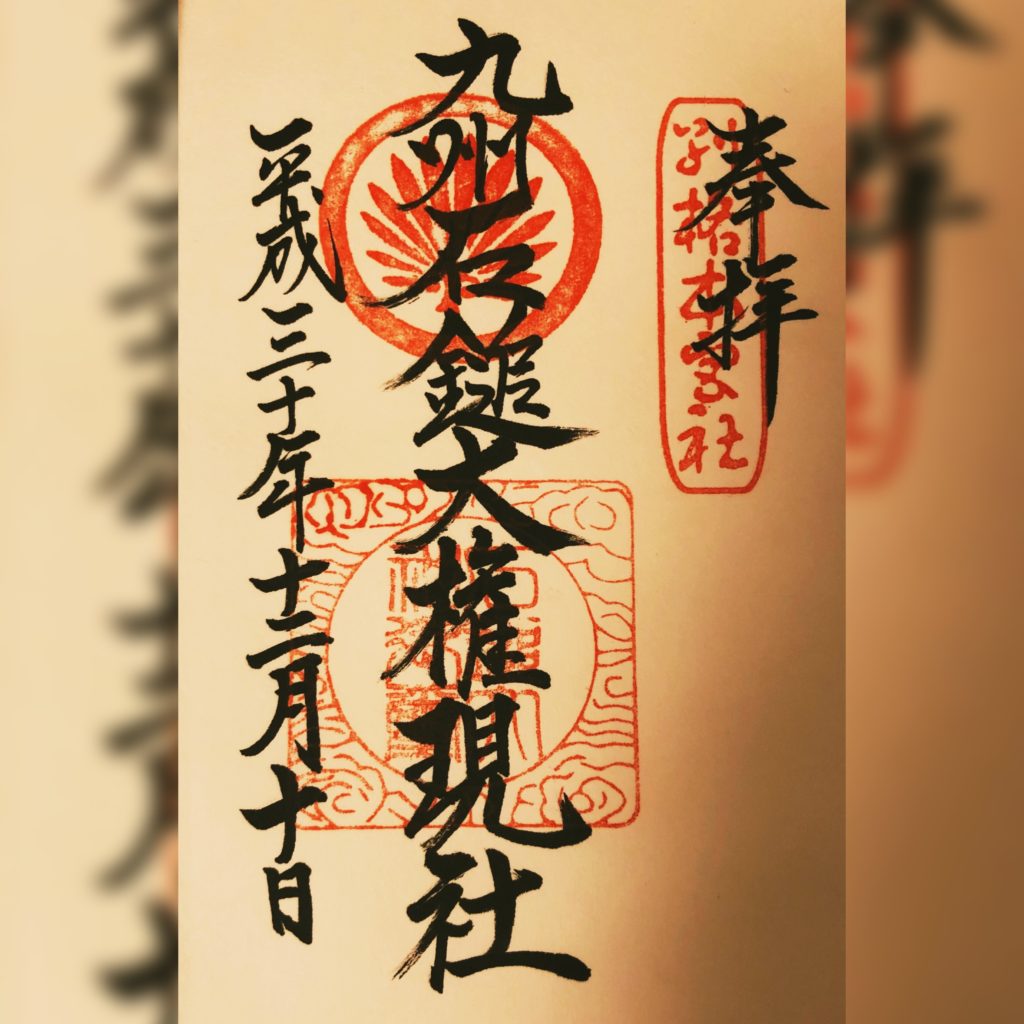 奉拝
九州石鎚大権現社
平成三十年十二月十日